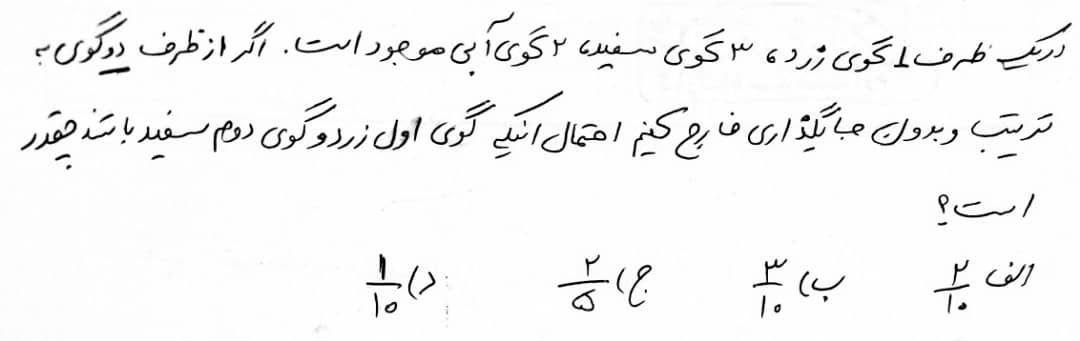 در یک ظرف 1 گوی زرد، ۳ گوی سفید، ۲ گوی آبی موجود است. اگر از ظرف دو گوی به
ترتیب و بدون جایگذاری خارج کنیم احتمال اینکه گوی اول زرد و گوی دوم سفید باشد چقدر
است؟
الف ۲/۱۰ ب) ۳/۱۰ ج) ۲/۵ د) ۱/۱۰